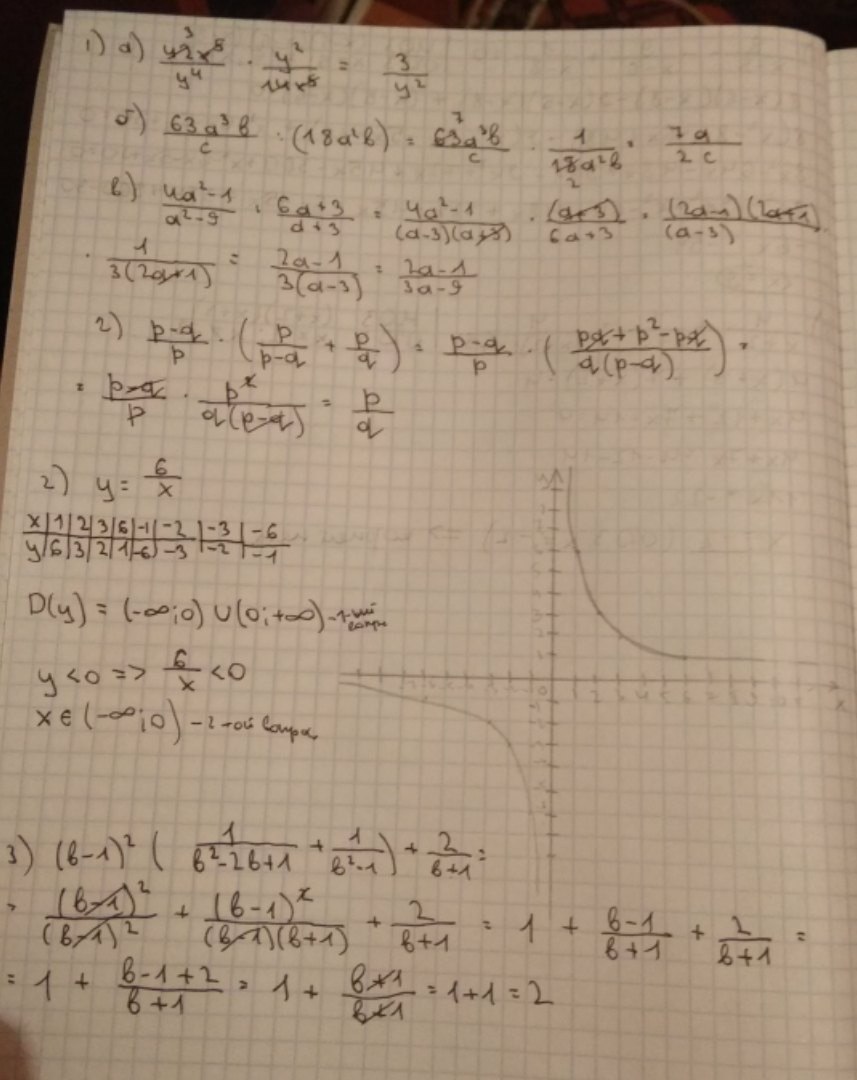 1) а) 42x⁵/y⁴ · y²/14x⁵ = 3/y²
б) 63a³b/c : (18a²b) = 63a³b/c · 1/18a²b = 7a/2c
в) 4a²-1/a²-9 : 6a+3/a+3 = 4a²-1/(a-3)(a+3) · (a+3)/6a+3 = (2a-1)(2a+1)/(a-3) ·
· 1/3(2a+1) = 2a-1/3(a-3) = 2a-1/3a-9
г) p-q/p · (p/p-q + p/q) = p-q/p · (pq+p²-pq/q(p-q)) =
= p-q/p · p²/q(p-q) = p/q
2) y = 6/x
x|1|2|3|6|-1|-2|-3|-6
y|6|3|2|1|-6|-3|-2|-1
D(y) = (-∞;0) ∪ (0;+∞) - 1-ый вопрос
y<0 => 6/x <0
x ∈ (-∞;0) - 2-ой вопрос
3) (b-1)² (1/b²-2b+1 + 1/b²-1) + 2/b+1 =
= (b-1)²/(b-1)² + (b-1)²/(b-1)(b+1) + 2/b+1 = 1 + b-1/b+1 + 2/b+1 =
= 1 + b-1+2/b+1 = 1 + b+1/b+1 = 1+1 = 2